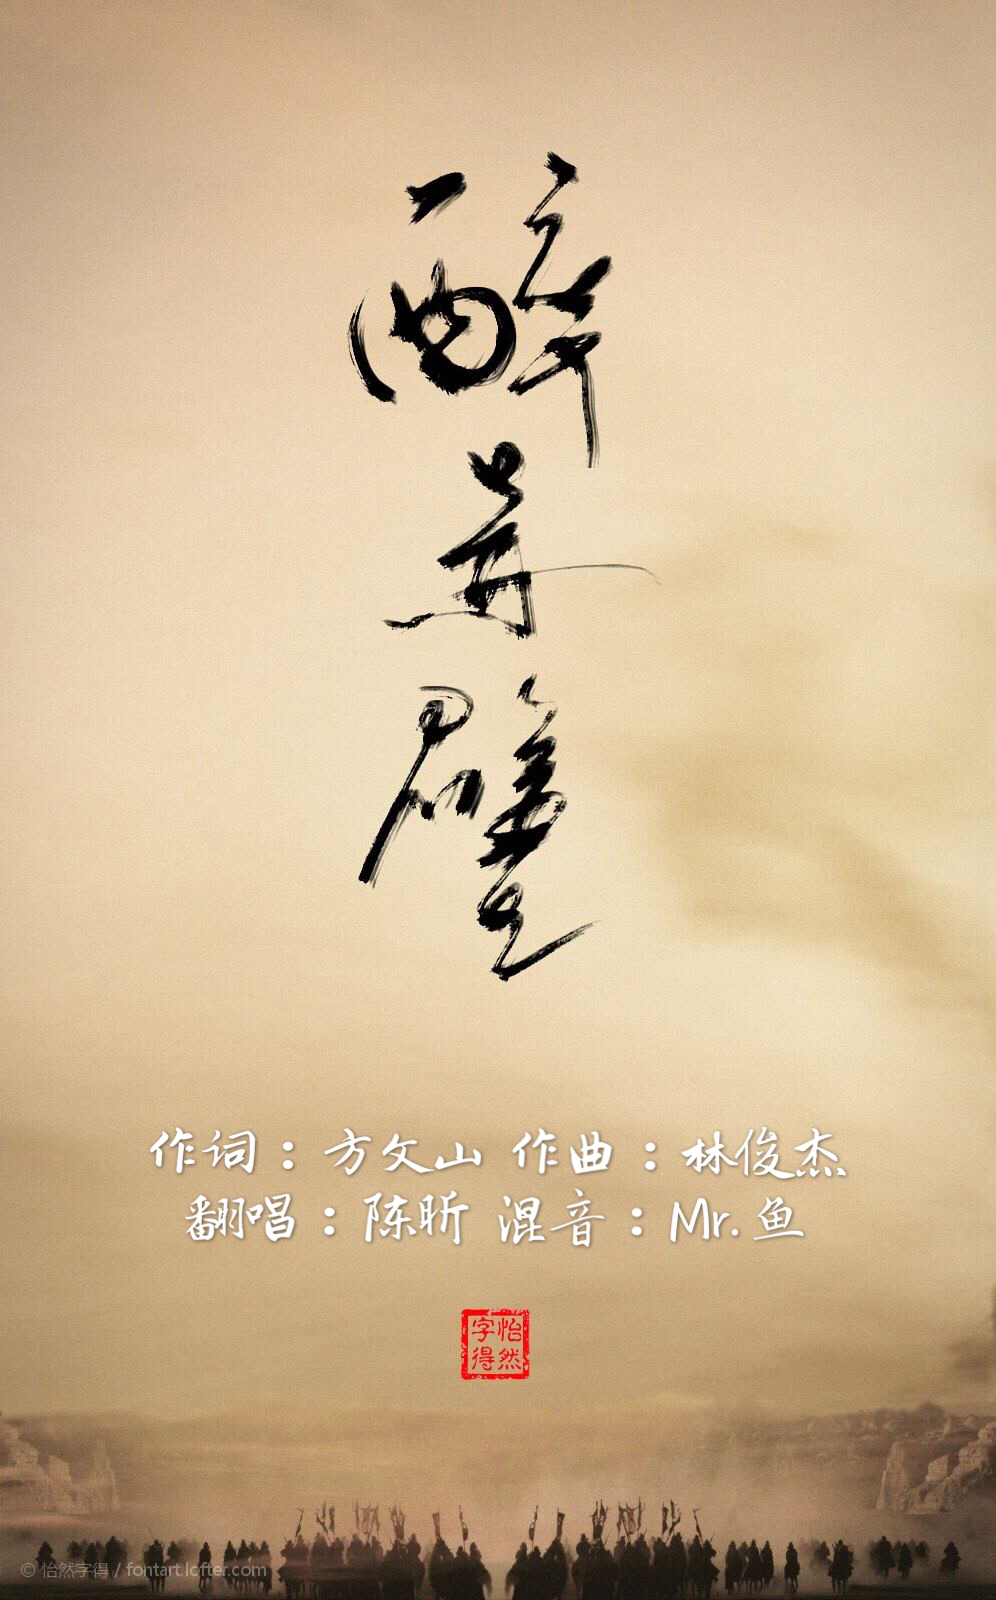 醉赤壁
作词：方文山 作曲：林俊杰
翻唱：陈昕 混音：Mr.鱼
怡然字得
© 怡然字得 / fontart.lofter.com